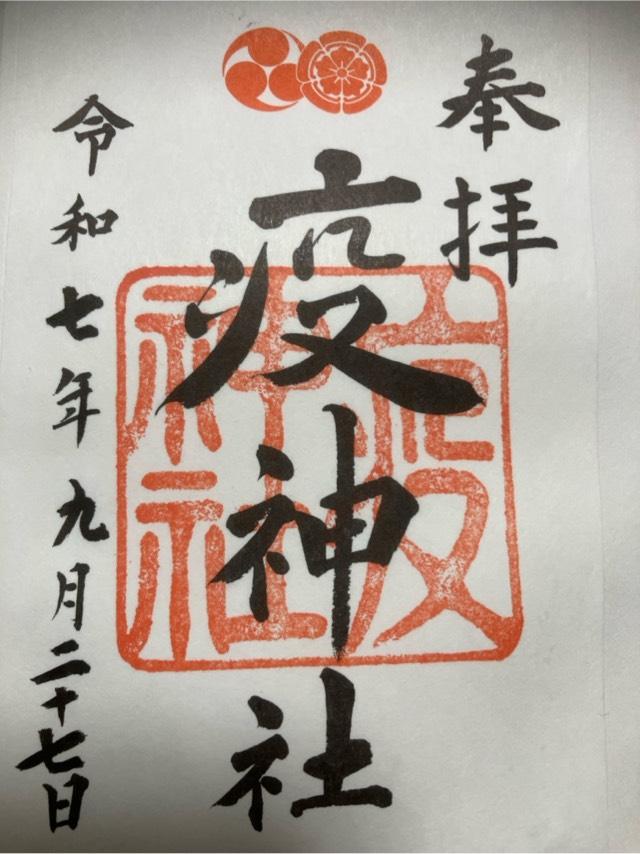 奉拝
疫神社
疫神社
令和七年九月二十七日